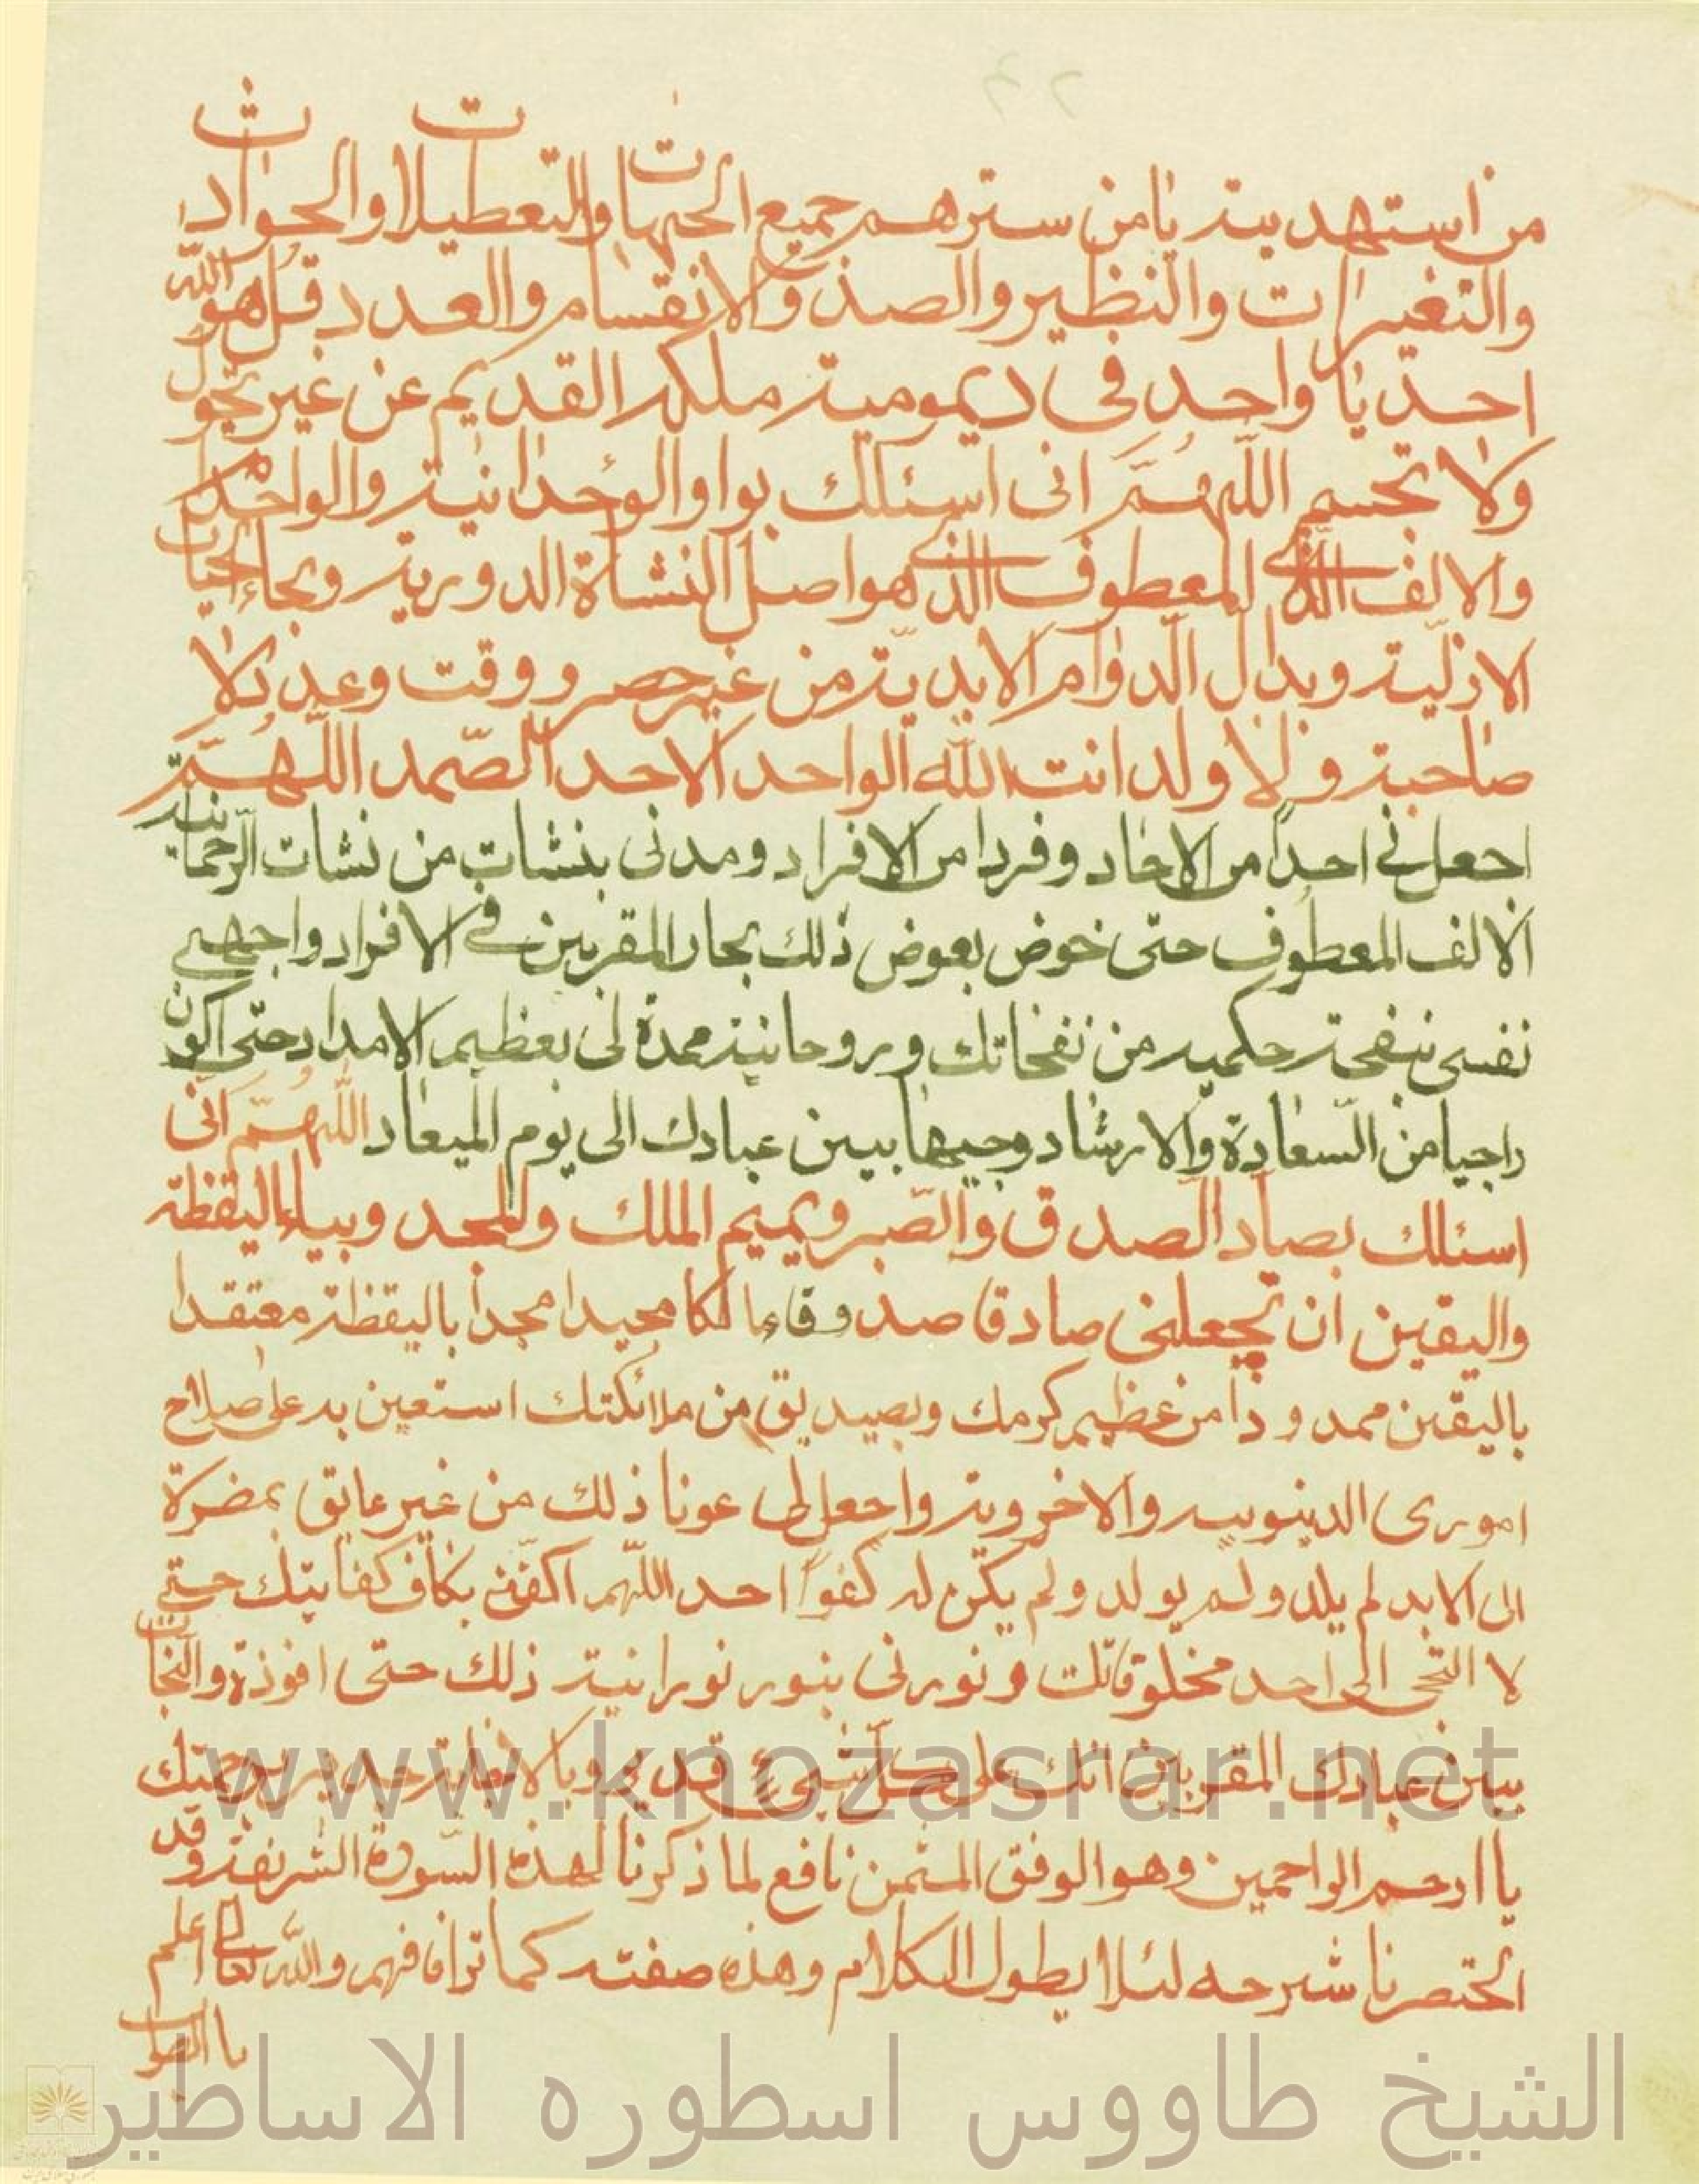 من استهديته يا من سترهم جميع الجهات والتعطيلات والحوادث
والتغيرات والنظير والضد والانقسام والعدد قل هو الله
احد يا واحد في ديمومية ملكه القديم عن غير تحول
ولا تجسم اللهم اني اسئلك بواو الوحدانية والواحد
والالف المعطوف الذي هو اصل النشاة الدورية وبحاء الحيات
الازلية وبدال الدوام الابدية من غير حصر ووقت وعد بلا
صاحبة ولا ولد انت الله الواحد الاحد الصمد اللهم
اجعلني احدا من الاحاد وفردا من الافراد ومدني بنشات من نشات الرحمانية
الالف المعطوف حتى خوض بعوض ذلك بحار المقربين في الافراد
نفسى بنفحة حكميه من نفحاتك وبروحانية ممدة لى بعظيم الامداد حتى اكون
راجيا من السعادة والارشاد وجيها بين عبادك الى يوم الميعاد اللهم انى
اسئلك بصاد الصدق والصبر وبميم الملك والمجد وبياء اليقظة
واليقين ان تجعلنى صادقا صدوقا مالكا مجيدا ممجدا باليقظة معتقدا
باليقين ممدودا من عظيم كرمك وبصيديق من ملائكتك استعين به على صلاح
امورى الدينوييه والاخروية واجعل لى عونا ذلك من غير عايق بمضرة
الى الابد لم يلد ولم يولد ولم يكن له كفوا احد اللهم اكفنى بكاف كفايتك حتى
لا التجى الى احد مخلوقاتك ونورنى بنور نورانية ذلك حتى افوذ والنجات
بين عبادك المقربين انك على كل شيء قدير وبالاجابة جدير برحمتك
يا ارحم الراحمين وهو الوفق المثمن نافع لما ذكرنا لهذه السورة الشريفة وقد
اختصرنا شرحه لئلا يطول الكلام وهذه صفته كما ترا فافهم والله تعالى اعلم
باالصواب
www.knozasrar.net
الشيخ طاووس اسطوره الاساطير